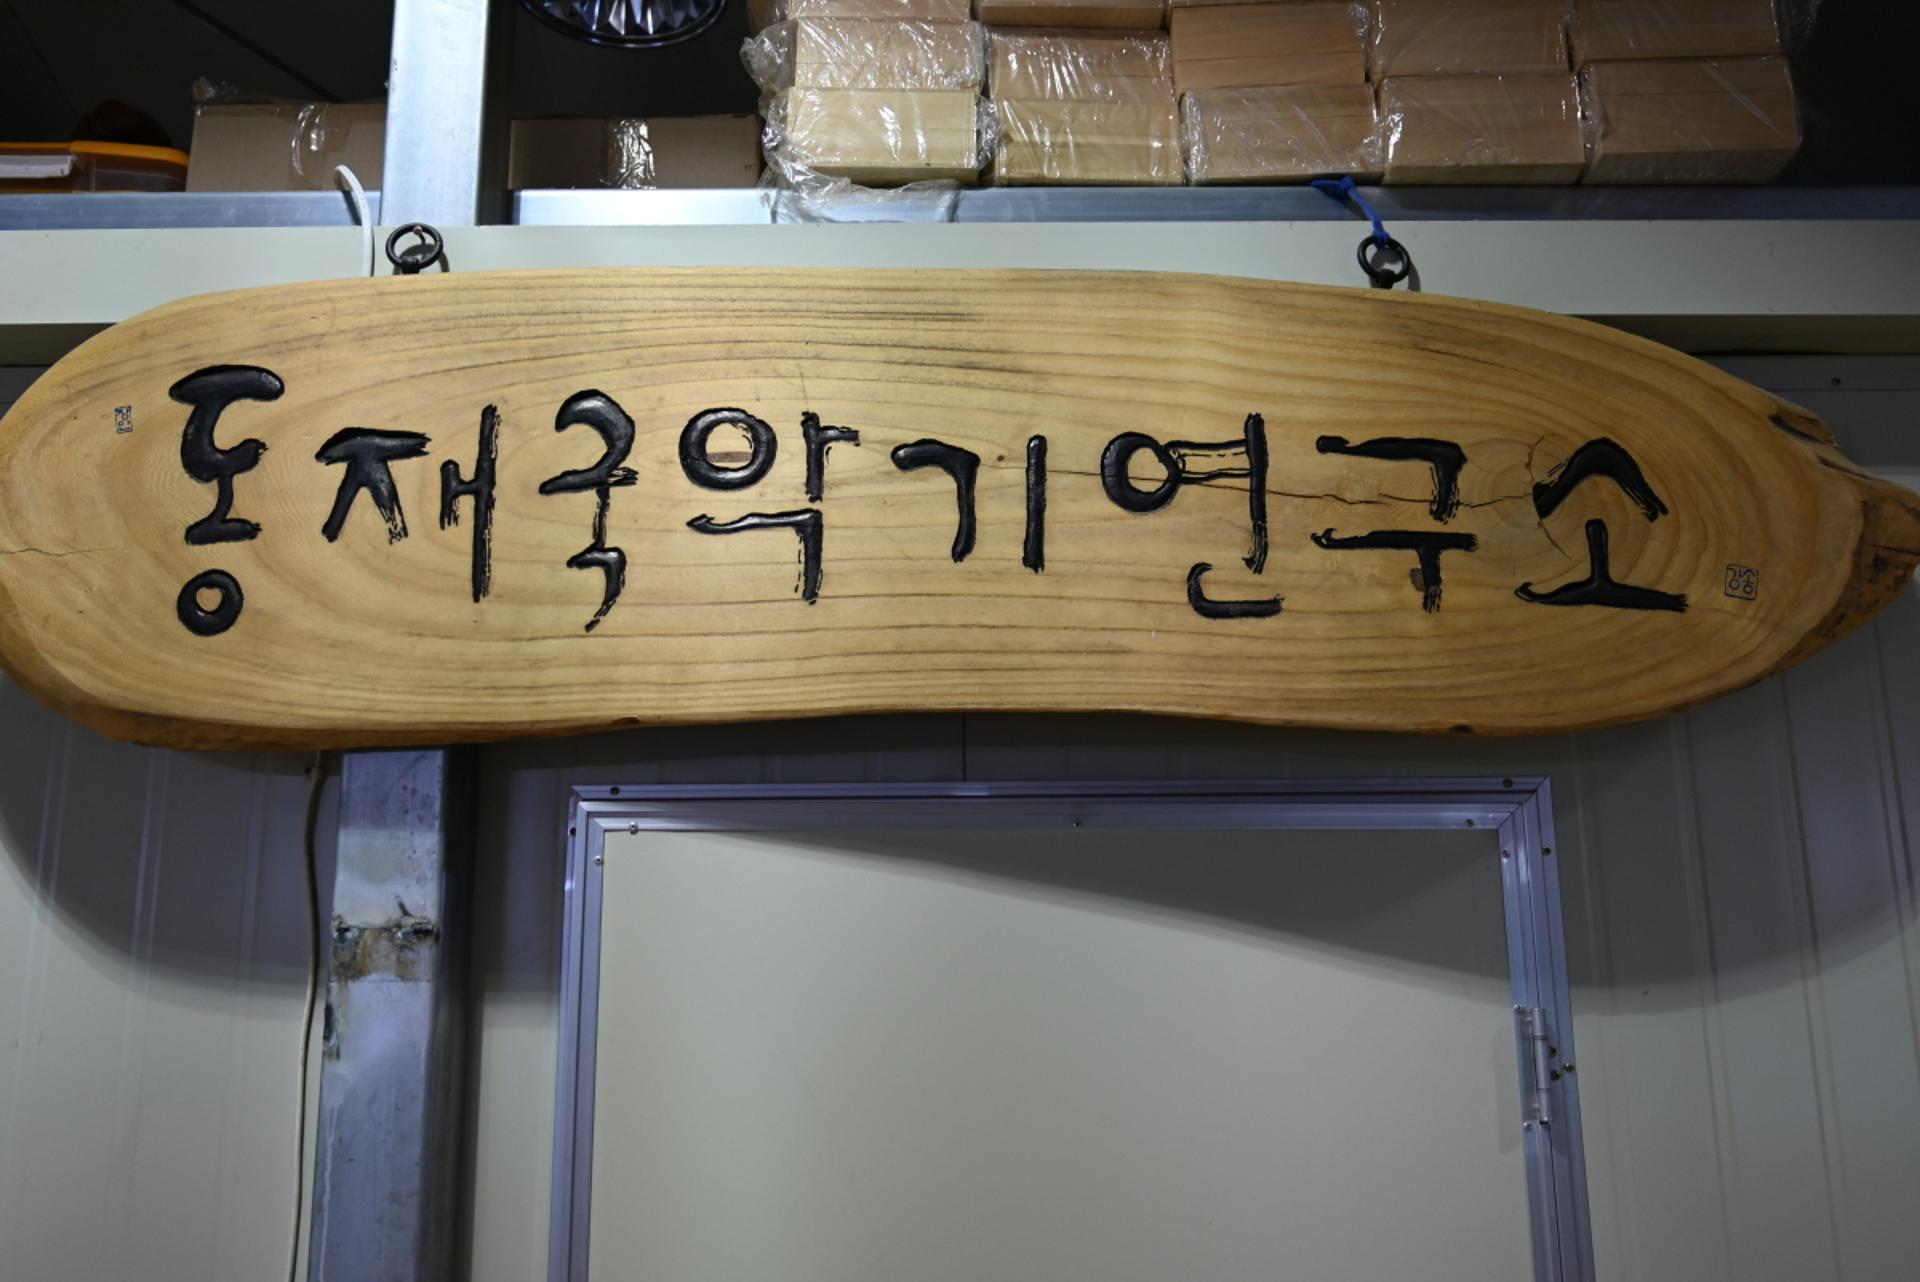 동재국악기연구소